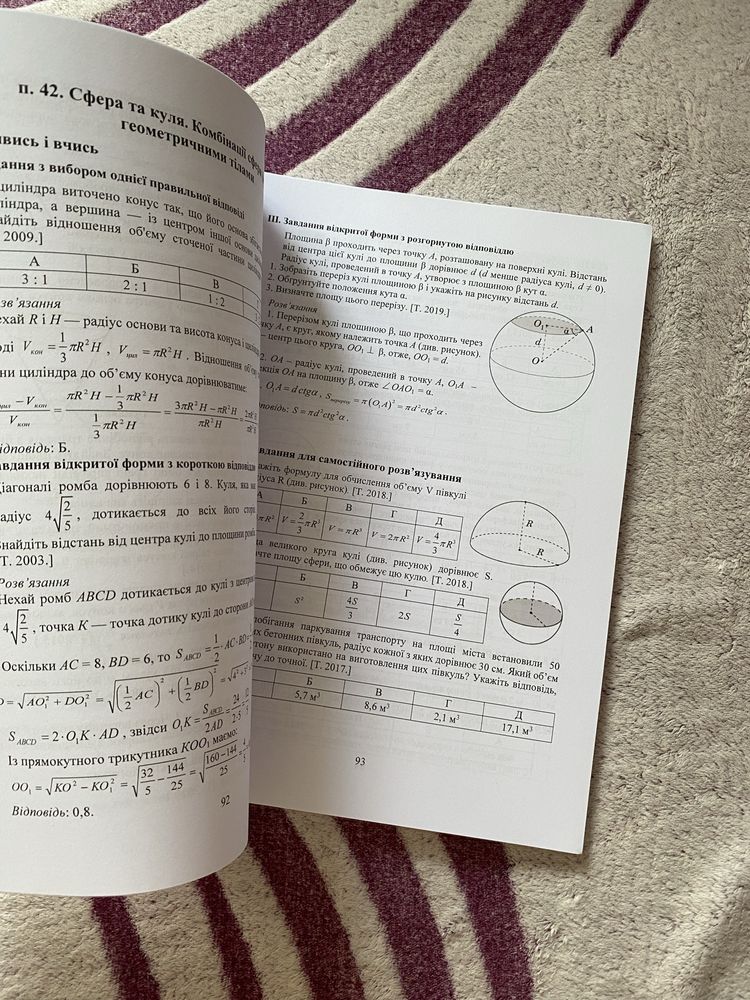 п. 42. Сфера та куля. Комбінації сфери
геометричними тілами
вись і вчись
дання з вибором однієї правильної відповіді
циліндра виточено конус так, що його основа
ліндра, а вершина — із центром іншої основи
найдіть відношення об'єму сточеної частини
2009.]
А Б В
3 : 1 2 : 1 1 : 2
зв'язання
ехай R і H — радіус основи та висота конуса і
оді V кон = 1/3 πR²H , V цил = πR²H . Відношення об'єму
ни циліндра до об'єму конуса дорівнюватиме:
цил − V кон / V кон = (πR²H − 1/3 πR²H) / (1/3 πR²H) = (3πR²H − πR²H) / πR²H =
ідповідь: Б.
авдання відкритої форми з короткою відповіддю
іагоналі ромба дорівнюють 6 і 8. Куля, яка
радіус 4√(2/5) , дотикається до всіх його
Знайдіть відстань від центра кулі до площини ромба.
[Т. 2003.]
Розв'язання
Нехай ромб ABCD дотикається до кулі з центром
4√(2/5) , точка K — точка дотику кулі до сторони
Оскільки AC = 8, BD = 6, то S ABCD = 1/2 · AC · BD =
D = √(AO₁² + DO₁²) = √((1/2 AC)² + (1/2 BD)²) =
S ABCD = 2 · O₁K · AD , звідси O₁K = S ABCD / 2AD = 24 / 2·5 =
Із прямокутного трикутника KOO₁ маємо:
OO₁ = √(KO² − KO₁²) = √(32/5 − 144/25) = √((160 − 144)/25) =
Відповідь: 0,8.
92
III. Завдання відкритої форми з розгорнутою відповіддю
Площина β проходить через точку A, розташовану на поверхні кулі. Відстань
від центра цієї кулі до площини β дорівнює d (d менше радіуса кулі, d ≠ 0).
Радіус кулі, проведений в точку A, утворює з площиною β кут α.
1. Зобразіть переріз кулі площиною β і укажіть на рисунку відстань d.
2. Обґрунтуйте положення кута α.
3. Визначте площу цього перерізу. [Т. 2019.]
Розв'язання
1. Перерізом кулі площиною β, що проходить через
чку A, є круг, якому належить точка A (див. рисунок).
– центр цього круга, OO₁ ⊥ β, отже, OO₁ = d.
2. OA – радіус кулі, проведений в точку A, O₁A –
екція OA на площину β, отже ∠OAO₁ = α.
O₁A = d ctgα , S перерізу = π(O₁A)² = πd²ctg²α .
повідь: S = πd²ctg²α .
O₁ α A
d
O
авдання для самостійного розв'язування
кажіть формулу для обчислення об'єму V півкулі
іуса R (див. рисунок). [Т. 2018.]
А Б В Г Д
πR² V = 2/3 πR³ V = πR³ V = 2πR³ V = 4/3 πR³
R
R
а великого круга кулі (див. рисунок) дорівнює S.
ачте площу сфери, що обмежує цю кулю. [Т. 2018.]
Б В Г Д
S² 4S/3 2S S/4
обігання паркування транспорту на площі міста встановили 50
их бетонних півкуль, радіус кожної з яких дорівнює 30 см. Який об'єм
етону використано на виготовлення цих півкуль? Укажіть відповідь,
чу до точної. [Т. 2017.]
Б В Г Д
5,7 м³ 8,6 м³ 2,1 м³ 17,1 м³
93